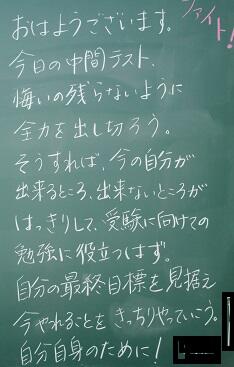 おはようございます。
ファイト!
今日の中間テスト、
悔いの残らないように
全力を出し切ろう。
そうすれば、今の自分が
出来るところ、出来ないところが
はっきりして、受験に向けての
勉強に役立つはず。
自分の最終目標を見据え
今やれることをきっちりやっていこう。
自分自身のために!